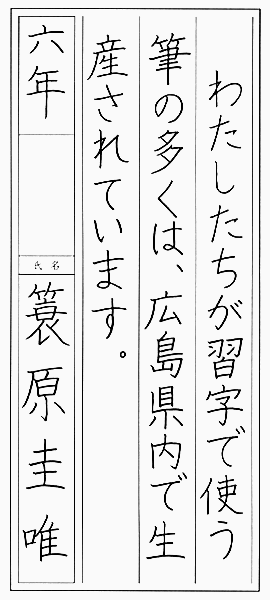 わたしたちが習字で使う
筆の多くは、広島県内で生
産されています。
六年
氏名
簑原圭唯